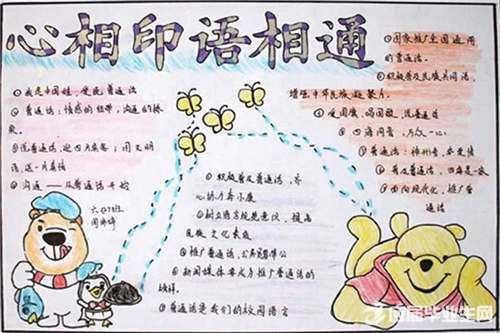 心相印语相通
①我是中国娃，爱说普通话
②普通话：情感的纽带，沟通的桥
梁。
③说普通话，迎四方宾客；用文明
语，送一片真情
④沟通——从普通话开始
六(2)班
①积极普及普通话，齐
心协力奔小康
②树立语言规范意识，提高
民族文化素质
③推广普通话，公务员
④新闻媒体要成为推广普通话的
榜样。
⑤普通话是我们的校园语言
①国家推广全国通用
的普通话。
②积极普及民族共同语，
增强中华民族凝聚力。
③爱国旗，唱国歌，说普通话
④四海同音，万众一心
⑤普通话：神州音，华夏情
⑥普及普通话，四海是一家
⑦面向现代化，推广普
通话
应届毕业生网